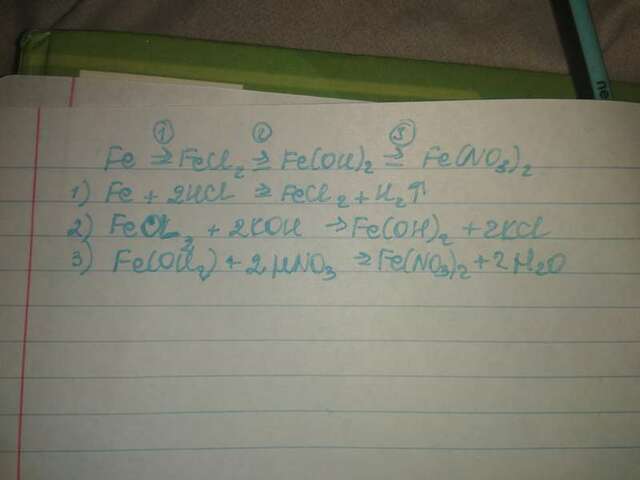 ① ② ③
Fe → FeCl₂ → Fe(OH)₂ → Fe(NO₃)₂
1) Fe + 2HCl → FeCl₂ + H₂↑
2) FeCl₂ + 2KOH → Fe(OH)₂ + 2KCl
3) Fe(OH₂) + 2HNO₃ → Fe(NO₃)₂ + 2H₂O